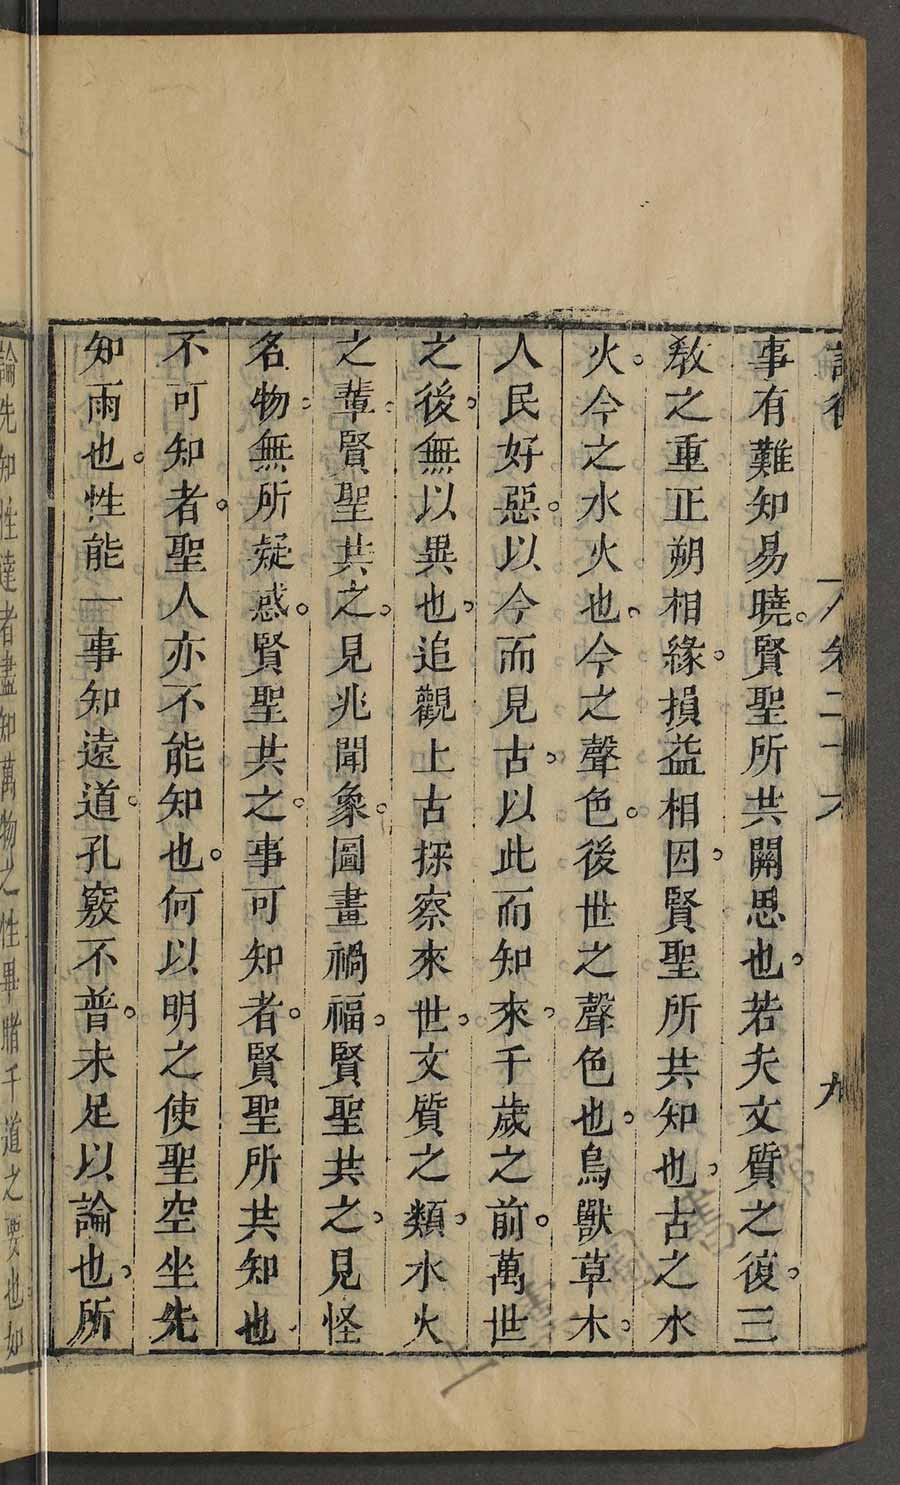 卷二十六
九
事有難知易曉。賢聖所共關思也。若夫文質之復。三
敎之重。正朔相緣。損益相因。賢聖所共知也。古之水
火。今之水火也。今之聲色。後世之聲色也。鳥獸草木。
人民好惡。以今而見古。以此而知來。千歲之前。萬世
之後。無以異也。追觀上古。探察來世。文質之類。水火
之輩。賢聖共之。見兆聞象。圖畫禍福。賢聖共之。見怪
名物。無所疑惑。賢聖共之。事可知者。賢聖所共知也
不可知者。聖人亦不能知也。何以明之使聖空坐先
知雨也。性能一事知遠道。孔竅不普。未足以論也。所
論先知性達者盡知萬物之性畢睹千道之要也如